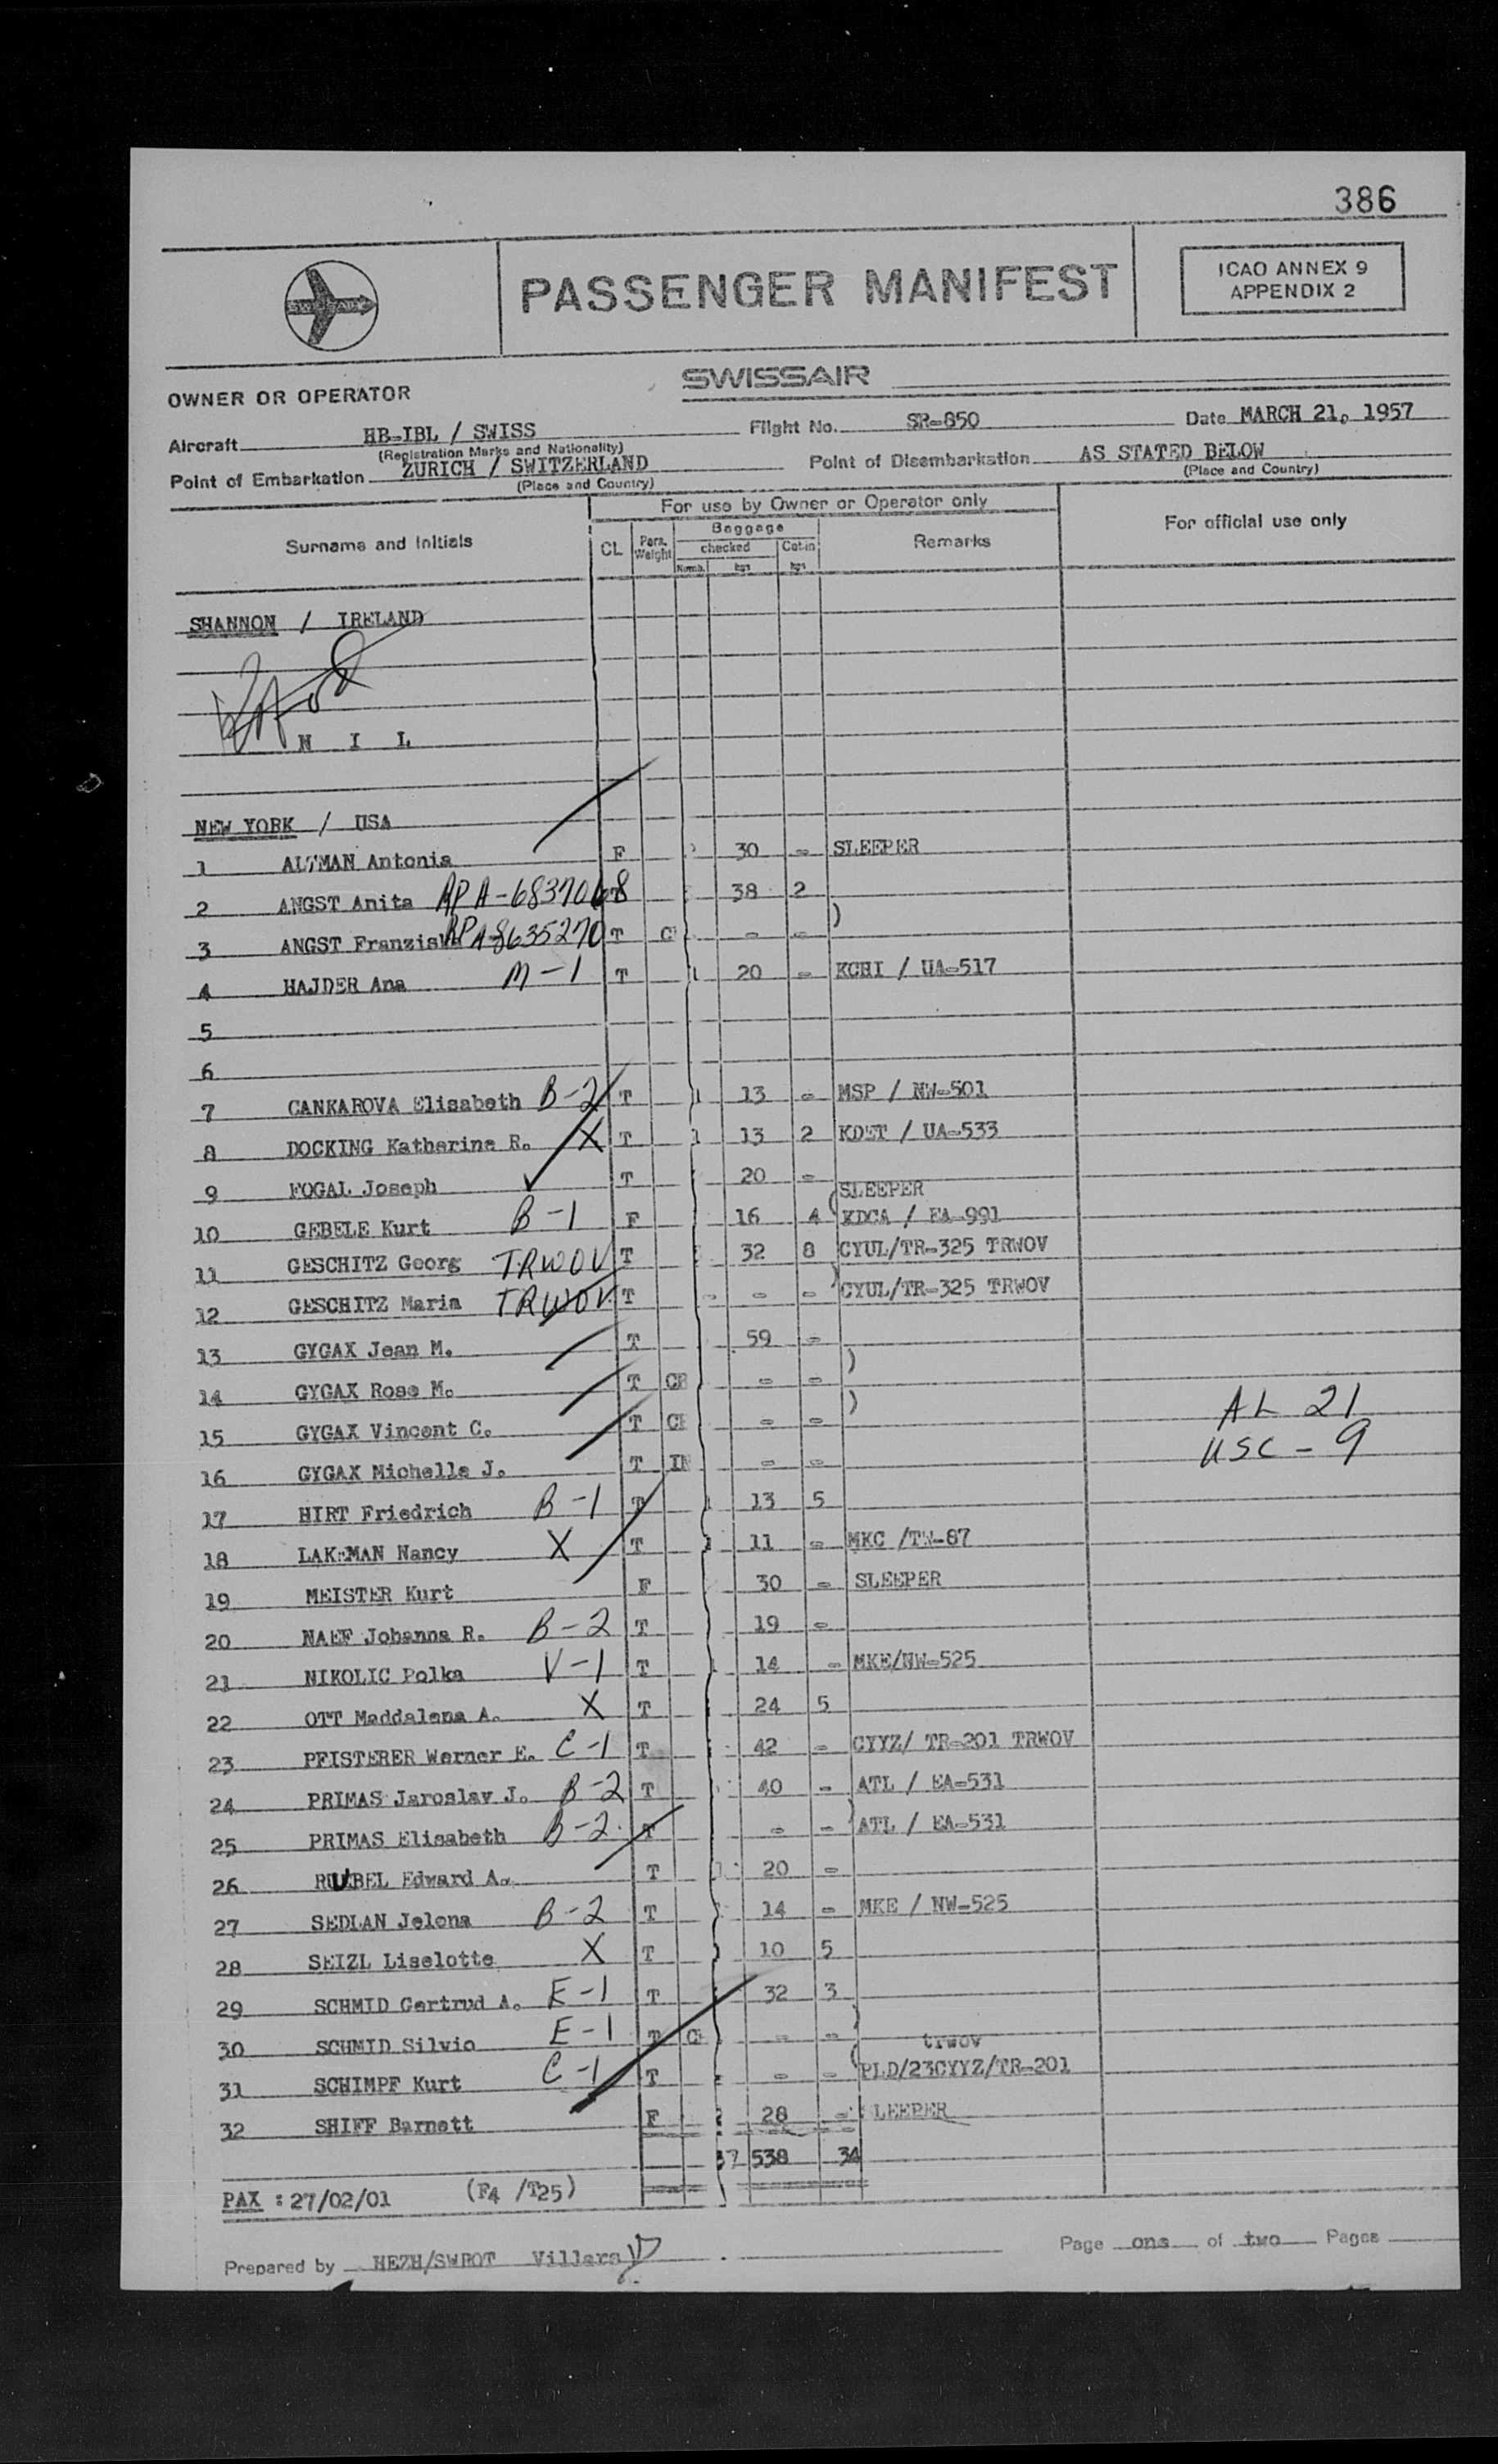 386
PASSENGER MANIFEST
ICAO ANNEX 9
APPENDIX 2
SWISSAIR
OWNER OR OPERATOR
Aircraft HB-IBL / SWISS Flight No. SR-850 Date MARCH 21, 1957
(Registration Marks and Nationality)
Point of Embarkation ZURICH / SWITZERLAND Point of Disembarkation AS STATED BELOW
(Place and Country) (Place and Country)
For use by Owner or Operator only
Surname and Initials CL Pers. Weight Baggage Remarks For official use only
checked Cabin
Numb. kgs kgs
SHANNON / IRELAND
N I L
NEW YORK / USA
1 ALTMAN Antonia F 30 - SLEEPER
2 ANGST Anita AP A-6837068 38 2
3 ANGST Franziska AP A-8635270 T - - )
4 HAJDER Ana M-1 T 1 20 - KCHI / UA-517
5
6
7 CANKAROVA Elisabeth B-2 T 1 13 - MSP / NW-501
8 DOCKING Katherine R. X T 1 13 2 KDET / UA-533
9 FOGAL Joseph T 20 -
10 GEBELE Kurt B-1 F 16 4 (SLEEPER
KDCA / EA-991
11 GESCHITZ Georg TRWOV T 32 8 CYUL/TR-325 TRWOV
12 GESCHITZ Maria TRWOV T - - - )CYUL/TR-325 TRWOV
13 GYGAX Jean M. T 59 -
14 GYGAX Rose M. T CH - - )
15 GYGAX Vincent C. T CH - - )
16 GYGAX Michelle J. T IN - -
AL 21
USC - 9
17 HIRT Friedrich B-1 T 13 5
18 LAKEMAN Nancy X T 11 - MKC /TW-87
19 MEISTER Kurt F 30 - SLEEPER
20 NAEF Johanna R. B-2 T 19 -
21 NIKOLIC Polka V-1 T 14 - MKE/NW-525
22 OTT Maddalena A. X T 24 5
23 PFISTERER Werner E. C-1 T 42 - CYYZ/ TR-201 TRWOV
24 PRIMAS Jaroslav J. B-2 T 40 - ATL / EA-531
25 PRIMAS Elisabeth B-2 T - - )ATL / EA-531
26 RUEBEL Edward A. T 20 -
27 SEDLAN Jelena B-2 T 14 - MKE / NW-525
28 SEIZL Liselotte X T 10 5
29 SCHMID Gertrud A. E-1 T 32 3
30 SCHMID Silvio E-1 T CH - - )
trwov
31 SCHIMPF Kurt C-1 T - - (PLD/23CYYZ/TR-201
32 SHIFF Barnett F 2 28 - SLEEPER
37 538 34
PAX : 27/02/01 (F4 /T25)
Prepared by HEZH/SWROT Villars Page one of two Pages